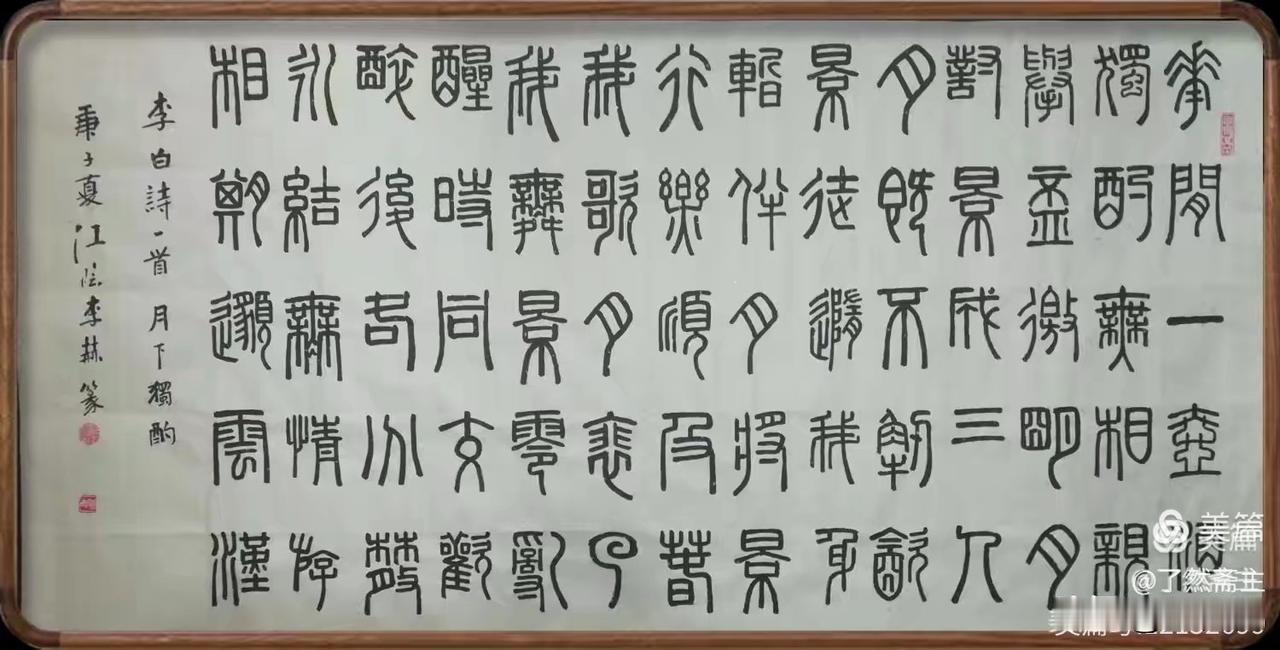 華閒一壺酒
獨酌無相親
舉盃邀明月
對景成三人
月既不解飲
景徒隨我身
暫伴月將景
行樂須及春
我歌月裴回
我舞景零亂
醒時同交歡
醉後各分散
永結無情游
相期邈雲漢
李白詩一首 月下獨酌
庚子夏 江李篆
美篇
@了然斋主